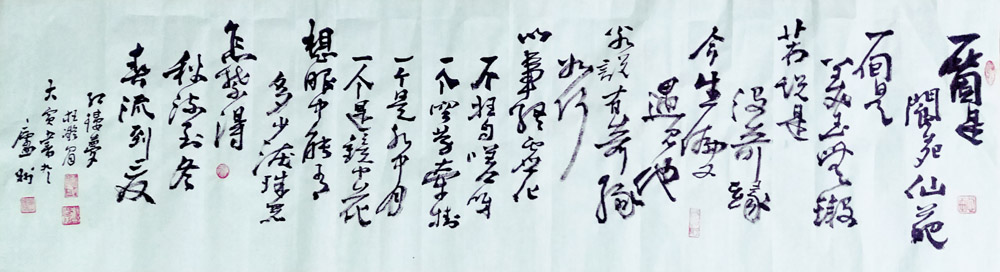 一個是
閬苑仙葩
一個是
美玉無瑕
若說是
沒奇緣
今生偏又
遇見他
若說有奇緣
如何
心事終虛化
一个枉自嗟呀
一个空勞牽掛
一个是水中月
一个是鏡中花
想眼中能有
多少淚珠兒
怎禁得
秋流到冬
春流到夏
紅樓夢
枉凝眉
寅書